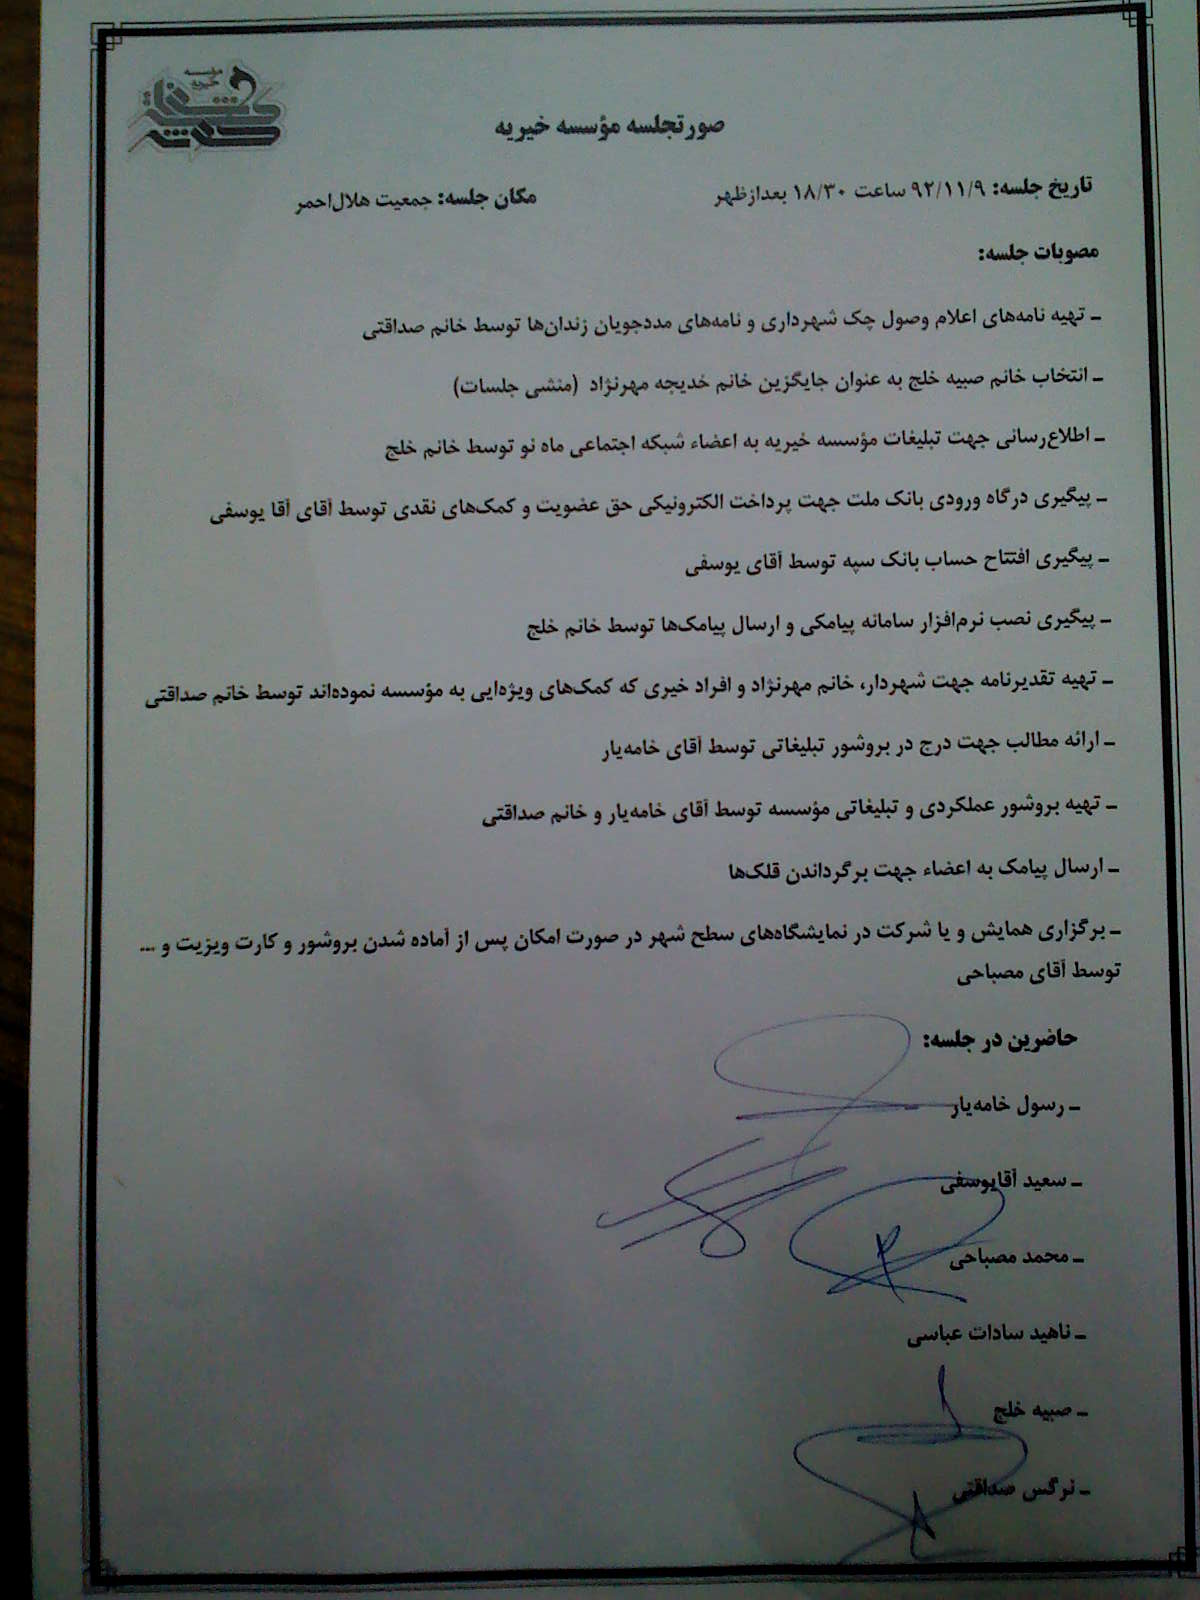 مؤسسه
خیریه
صورتجلسه مؤسسه خیریه
تاریخ جلسه: ۹۲/۱۱/۹ ساعت ۱۸/۳۰ بعدازظهر مکان جلسه: جمعیت هلال‌احمر
مصوبات جلسه:
ـ تهیه نامه‌های اعلام وصول چک شهرداری و نامه‌های مددجویان زندان‌ها توسط خانم صداقتی
ـ انتخاب خانم صبیه خلج به عنوان جایگزین خانم خدیجه مهرنژاد (منشی جلسات)
ـ اطلاع‌رسانی جهت تبلیغات مؤسسه خیریه به اعضاء شبکه اجتماعی ماه نو توسط خانم خلج
ـ پیگیری درگاه ورودی بانک ملت جهت پرداخت الکترونیکی حق عضویت و کمک‌های نقدی توسط آقای آقا یوسفی
ـ پیگیری افتتاح حساب بانک سپه توسط آقای یوسفی
ـ پیگیری نصب نرم‌افزار سامانه پیامکی و ارسال پیامک‌ها توسط خانم خلج
ـ تهیه تقدیرنامه جهت شهردار، خانم مهرنژاد و افراد خیری که کمک‌های ویژه‌ایی به مؤسسه نموده‌اند توسط خانم صداقتی
ـ ارائه مطالب جهت درج در بروشور تبلیغاتی توسط آقای خامه‌یار
ـ تهیه بروشور عملکردی و تبلیغاتی مؤسسه توسط آقای خامه‌یار و خانم صداقتی
ـ ارسال پیامک به اعضاء جهت برگرداندن قلک‌ها
ـ برگزاری همایش و یا شرکت در نمایشگاه‌های سطح شهر در صورت امکان پس از آماده شدن بروشور و کارت ویزیت و ....
توسط آقای مصباحی
حاضرین در جلسه:
ـ رسول خامه‌یار
ـ سعید آقایوسفی
ـ محمد مصباحی
ـ ناهید سادات عباسی
ـ صبیه خلج
ـ نرگس صداقتی